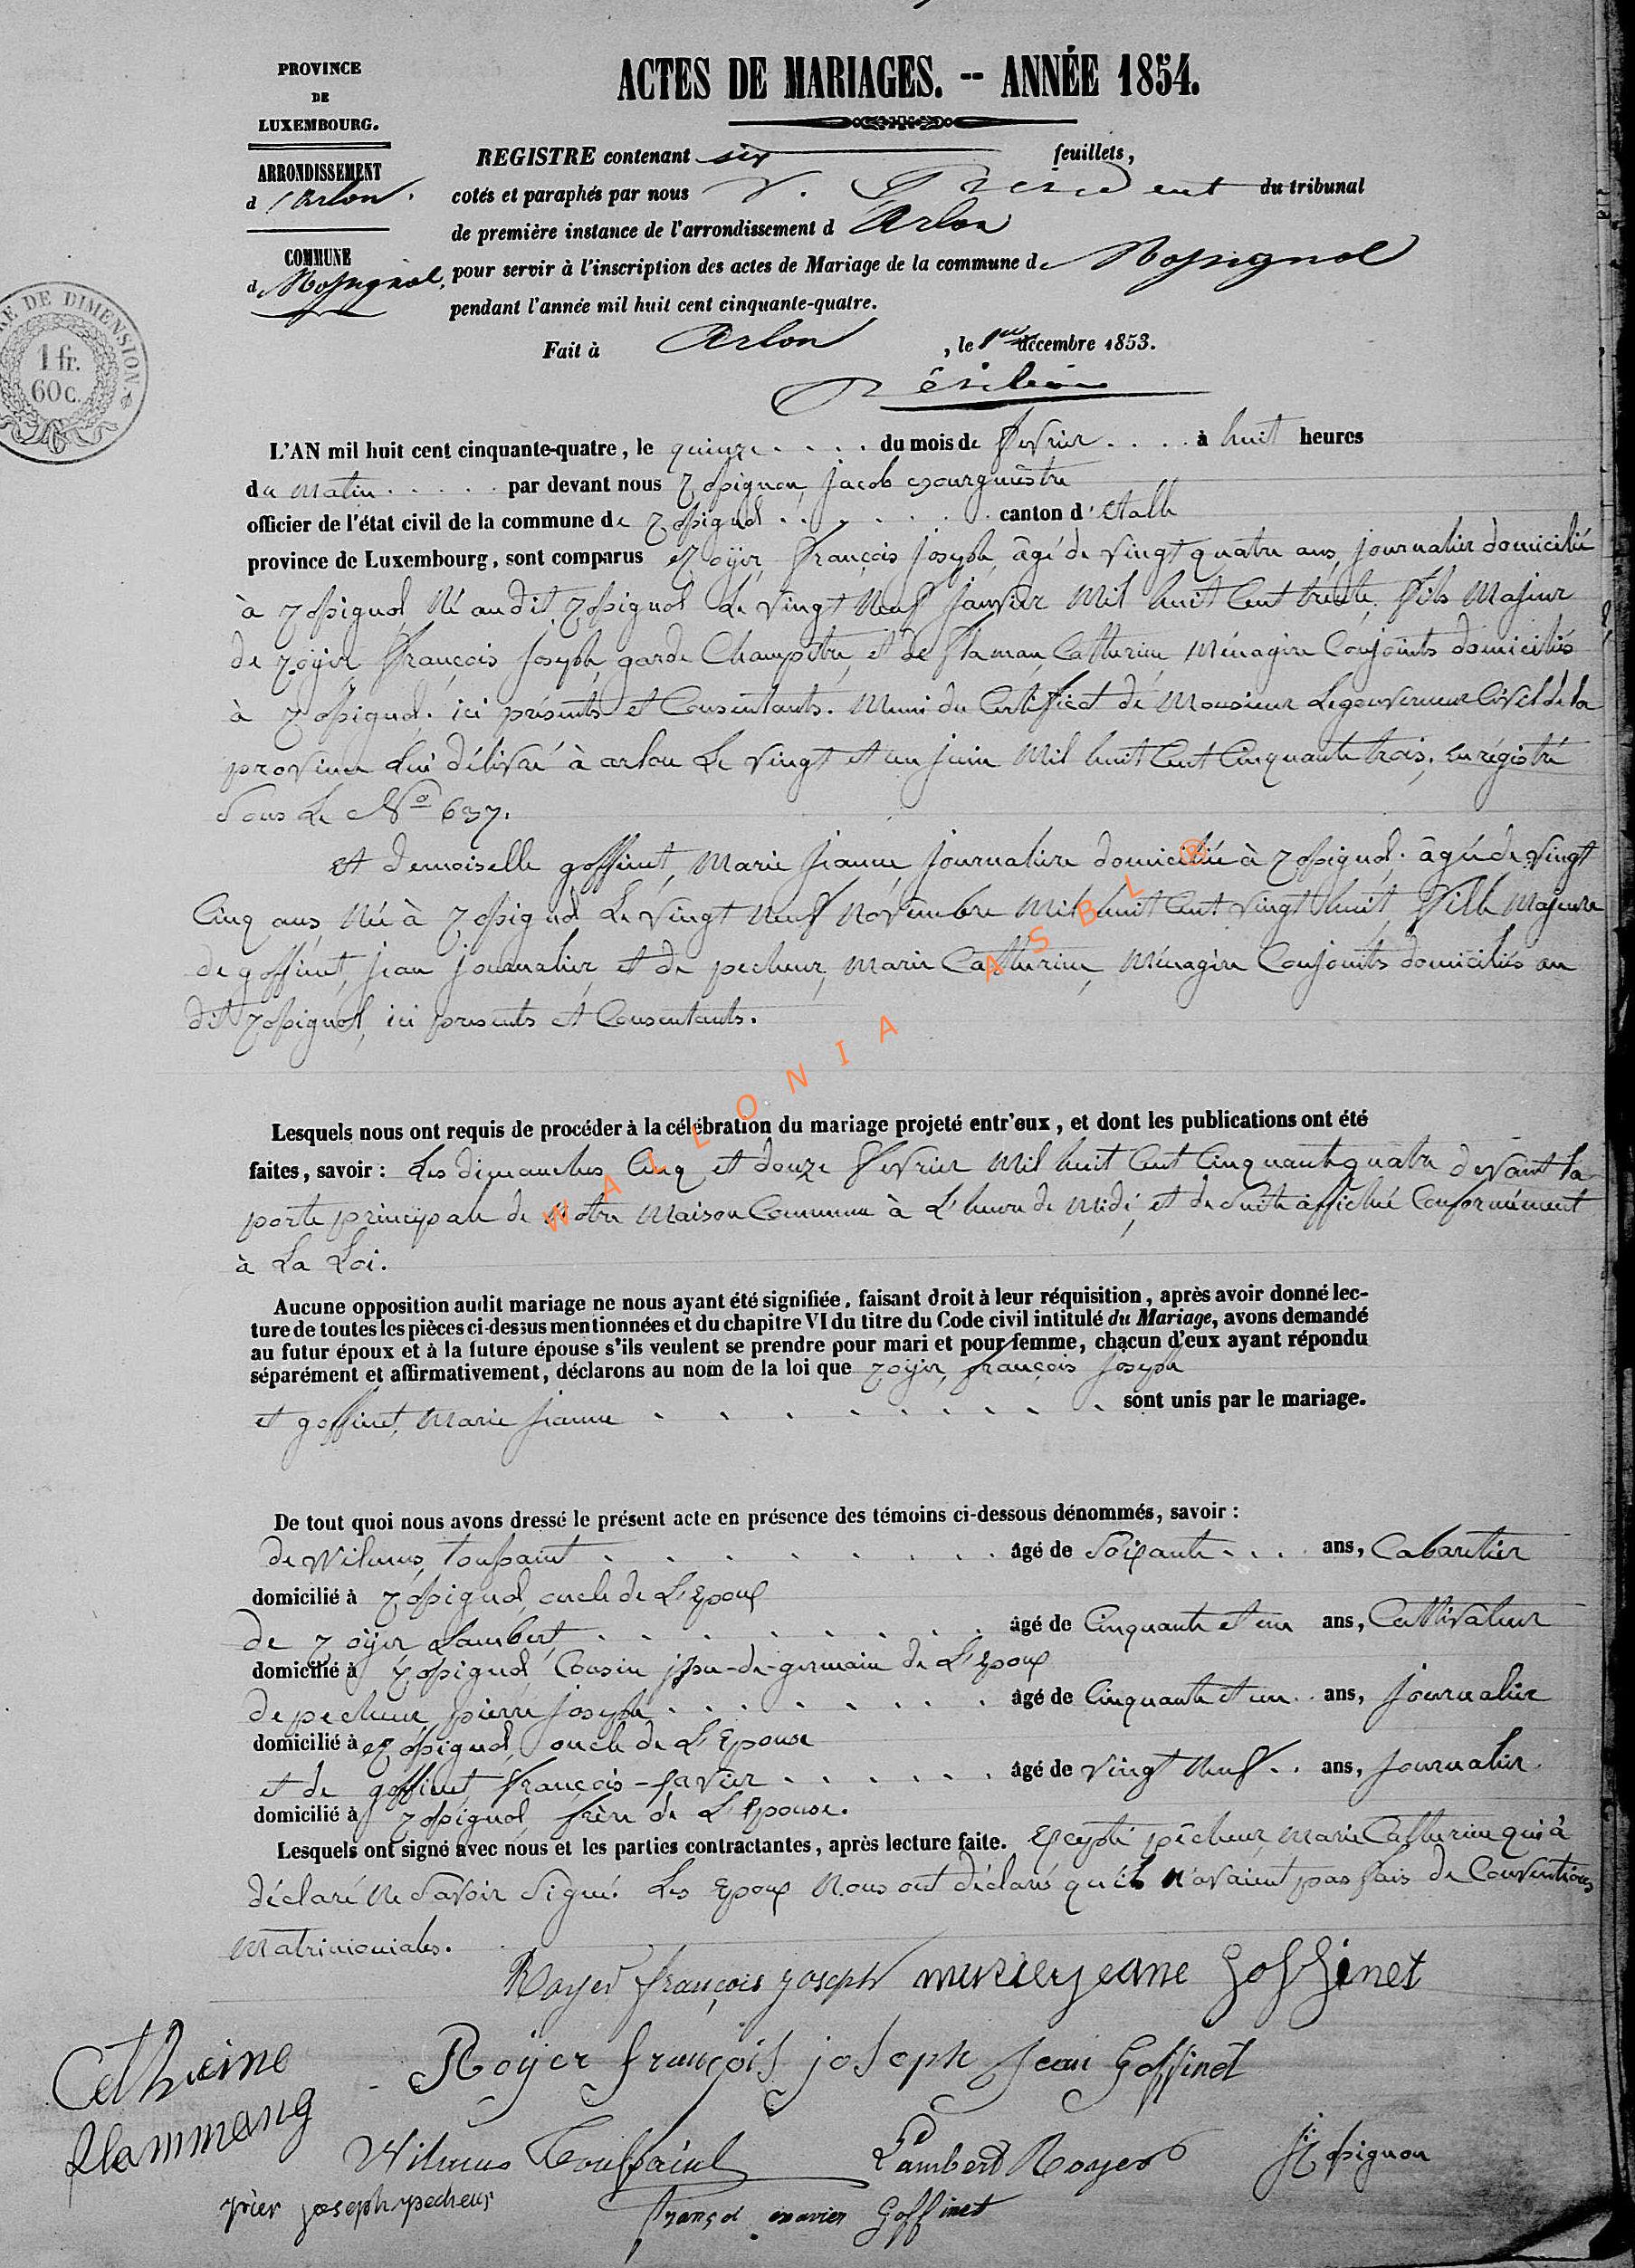 PROVINCE
DE
LUXEMBOURG.
ARRONDISSEMENT
d'Arlon.
COMMUNE
de Rossignol.
DE DIMENSION.
1 fr.
60 c.
ACTES DE MARIAGES. -- ANNÉE 1854.
REGISTRE contenant six feuillets,
cotés et paraphés par nous V. Président du tribunal
de première instance de l'arrondissement d Arlon
pour servir à l'inscription des actes de Mariage de la commune de Rossignol
pendant l'année mil huit cent cinquante-quatre.
Fait à Arlon, le 1er décembre 1853.
L'AN mil huit cent cinquante-quatre, le quinze du mois de fevrier à huit heures
du matin par devant nous Rossignon, Jacob Bourgmestre
officier de l'état civil de la commune de Rossignol canton d'Etalle
province de Luxembourg, sont comparus Royer, François Joseph, âgé de vingt quatre ans, journalier domicilié
à Rossignol, Né au dit Rossignol Le vingt Neuf Janvier Mil huit Cent trente, fils Majeur
de Royer, François Joseph, garde Champêtre, et de flaman, Catherine, Ménagère Conjoints domiciliés
à Rossignol. ici présents et Consentants. Muni du Certificat de Monsieur Le gouverneur Civil de la
province Lui délivré à arlon Le vingt et un juin Mil huit Cent Cinquante trois, enrégistré
Sous Le No 637.
et demoiselle goffinet, Marie Jeanne journalière domiciliée à Rossignol. âgée de vingt
Cinq ans, Née à Rossignol Le vingt Neuf Novembre Mil huit Cent vingt huit, fille Majeure
de goffinet, Jean journalier, et de pecheur, Marie Catherine, Ménagère Conjoints domiciliés au
dit Rossignol, ici presents et Consentants.
WALLONIA ASBL ®
Lesquels nous ont requis de procéder à la célébration du mariage projeté entr'eux, et dont les publications ont été
faites, savoir: Les dimanches Cinq et douze fevrier Mil huit Cent Cinquante quatre devant la
porte principale de Notre Maison Commune à L'heure de Midi, et de suite affiché Conformément
à La Loi.
Aucune opposition audit mariage ne nous ayant été signifiée, faisant droit à leur réquisition, après avoir donné lec-
ture de toutes les pièces ci-dessus mentionnées et du chapitre VI du titre du Code civil intitulé du Mariage, avons demandé
au futur époux et à la future épouse s'ils veulent se prendre pour mari et pour femme, chacun d'eux ayant répondu
séparément et affirmativement, déclarons au nom de la loi que Royer, françois Joseph
et goffinet, Marie Jeanne sont unis par le mariage.
De tout quoi nous avons dressé le présent acte en présence des témoins ci-dessous dénommés, savoir:
de Wilmus, toussaint âgé de Soixante ans, Cabaretier
domicilié à Rossignol, oncle de L'Epoux
de Royer Lambert âgé de Cinquante et un ans, Cultivateur
domicilié à Rossignol, Cousin issu-de-germain de L'Epoux
de pecheur pierre joseph âgé de Cinquante et un ans, journalier
domicilié à Rossignol, oncle de L'Epouse
et de goffinet, françois-xavier âgé de vingt Neuf ans, journalier
domicilié à Rossignol, frère de L'Epouse.
Lesquels ont signé avec nous et les parties contractantes, après lecture faite. Excepté pêcheur, Marie Catherine qui à
déclaré Ne Savoir Signé. Les Epoux Nous ont déclaré qu'ils n'avaient pas fais de Conventions
Matrimoniales.
Royer françois joseph Goffinet
Royer françois joseph Jean Goffinet
Catherine
flammang
Wilmus Toussaint Lambert Royer Rossignon
joseph pecheur xavier Goffinet